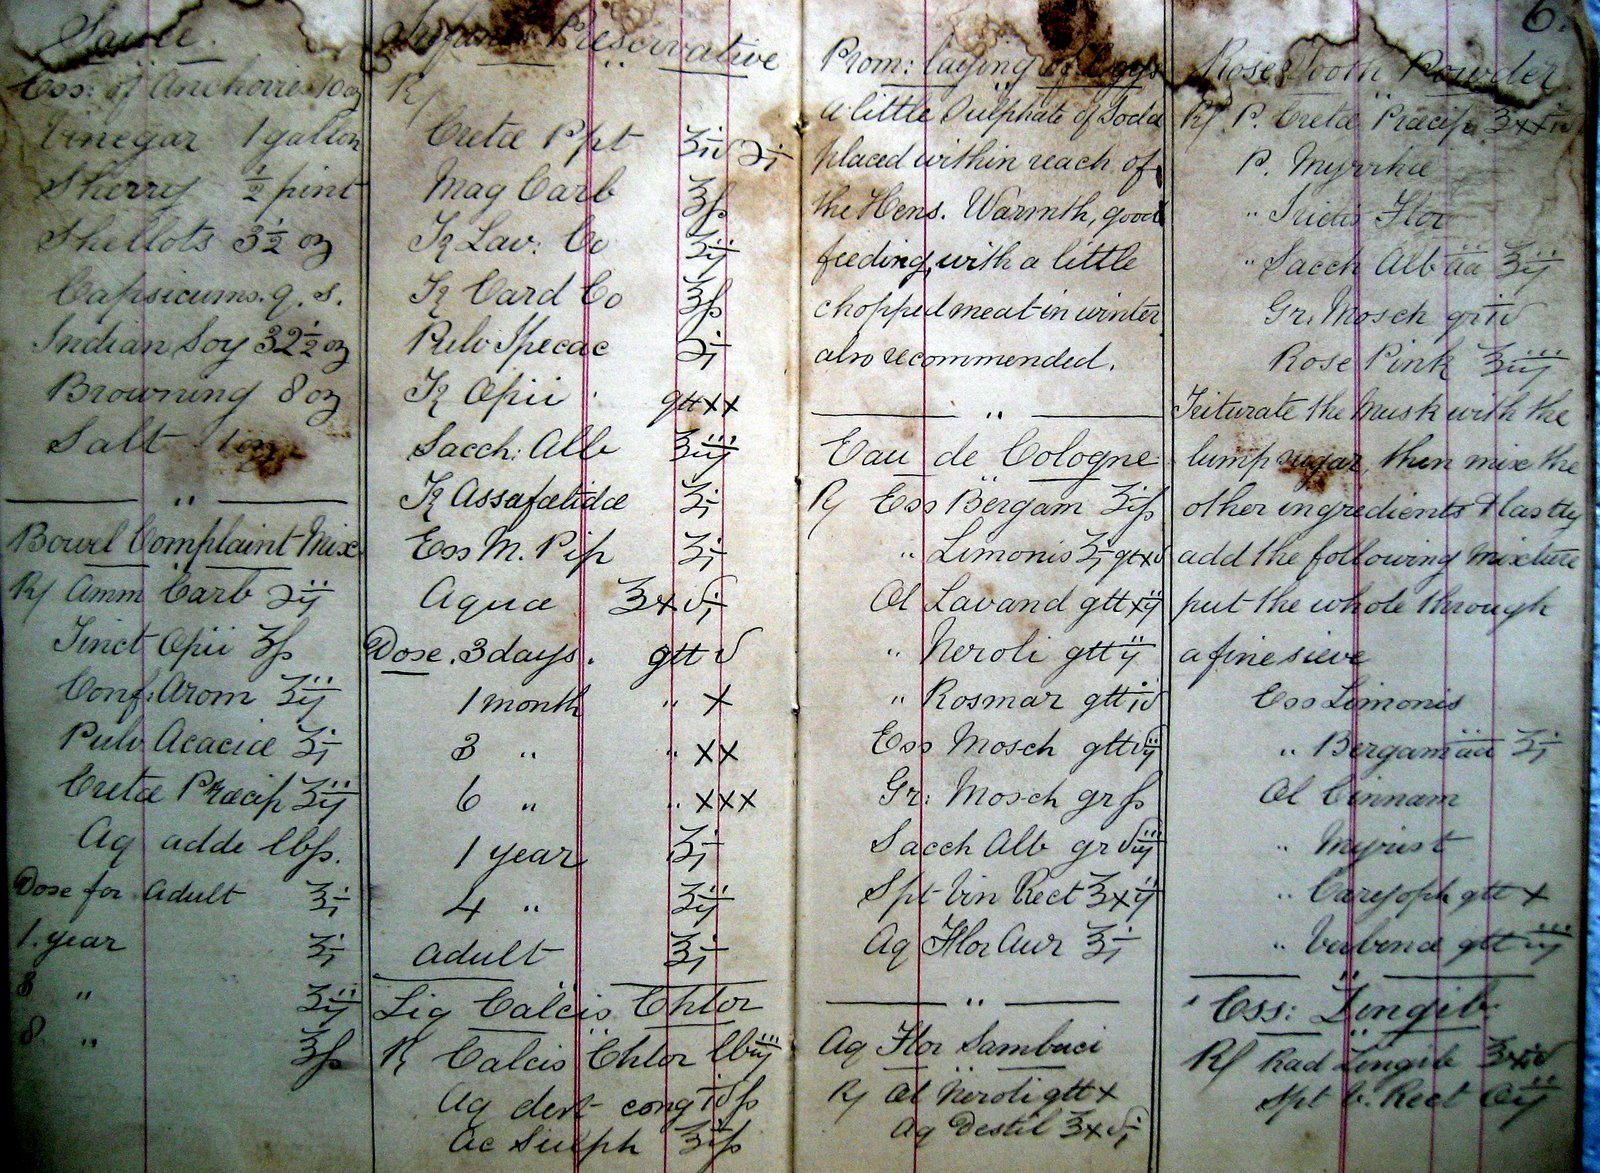 Sauce.
Ess: of Anchovie 10 oz
Vinegar 1 gallon
Sherry ½ pint
Shellots 3½ oz
Capsicums. q. s.
Indian Soy 32½ oz
Browning 8 oz
Salt 1 oz
Bowel Complaint Mix
R/ Amm Carb ℈ij
Tinct Opii ʒß
Conf: Arom ʒij
Pulv Acaciæ ʒj
Cretæ Præcip ʒiij
Aq adde lbß.
Dose for Adult ℥j
1. year ʒj
3 " ʒij
8 " ℥ß
Infants Preservative
R/
Creta Ppt ʒiv ℈j
Mag Carb ℥ß
Tr Lav: Co ʒij
Tr Card Co ℥ß
Pulv Ipecac ℈j
Tr Opii gtt xx
Sacch: Alb ℥iij
Tr Assafœtidæ ʒj
Ess M. Pip ʒj
Aquæ ℥xvj
Dose. 3 days. gtt v
1 month " x
3 " " xx
6 " " xxx
1 year ʒj
4 " ʒij
adult ℥j
Liq Calcis Chlor
R Calcis Chlor lbiij
Aq dest cong ivß
Ac Sulph ℥iß
6.
Prom: laying of Eggs
a little Sulphate of Soda
placed within reach of
the Hens. Warmth, good
feeding, with a little
chopped meat in winter
also recommended.
Eau de Cologne
R/ Ess Bergam ʒißs
" Limonis ʒj gtt xv
Ol Lavand gtt xij
" Neroli gtt ij
" Rosmar gtt iv
Ess Mosch gtt vij
Gr: Mosch gr ß
Sacch Alb gr viij
Spt Vin Rect ℥xij
Aq Flor Aur ℥j
Aq Flor Sambuci
R/ Ol Neroli gtt x
Aq Destil ℥xvj
Rose Tooth Powder
R/ P. Cretæ Præcip ℥xxiv
P. Myrrhæ
" Iridis Flor
" Sacch Alb āā ℥ij
Gr. Mosch gr iv
Rose Pink ℥iij
Triturate the Musk with the
lump sugar, then mix the
other ingredients & lastly
add the following mixture
put the whole through
a fine sieve
Ess Limonis
" Bergam āā ʒj
Ol Cinnam
" Myrist
" Caryoph gtt x
" Verbenæ gtt iij
Ess: Zingib.
R/ Rad Zingib ℥xiv
Spt v. Rect Oij